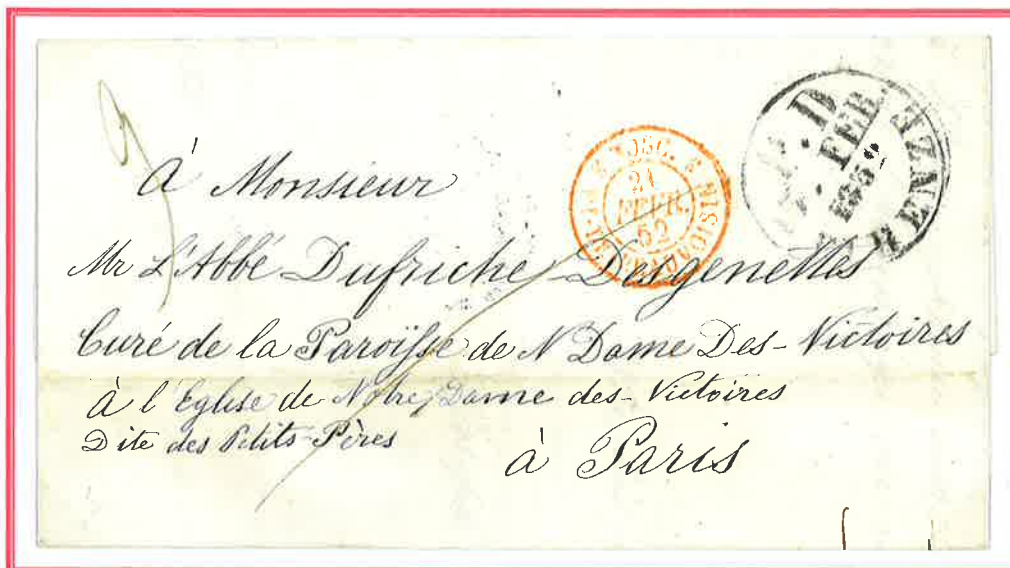 à Monsieur
Mr L'Abbé Dufriche-Desgenettes
Curé de la Paroïsse de N Dame Des-Victoires
à l'Eglise de Notre Dame des-Victoires
Dite des Petits-Pères
à Paris
21
FEVR.
52
FEB.
1852